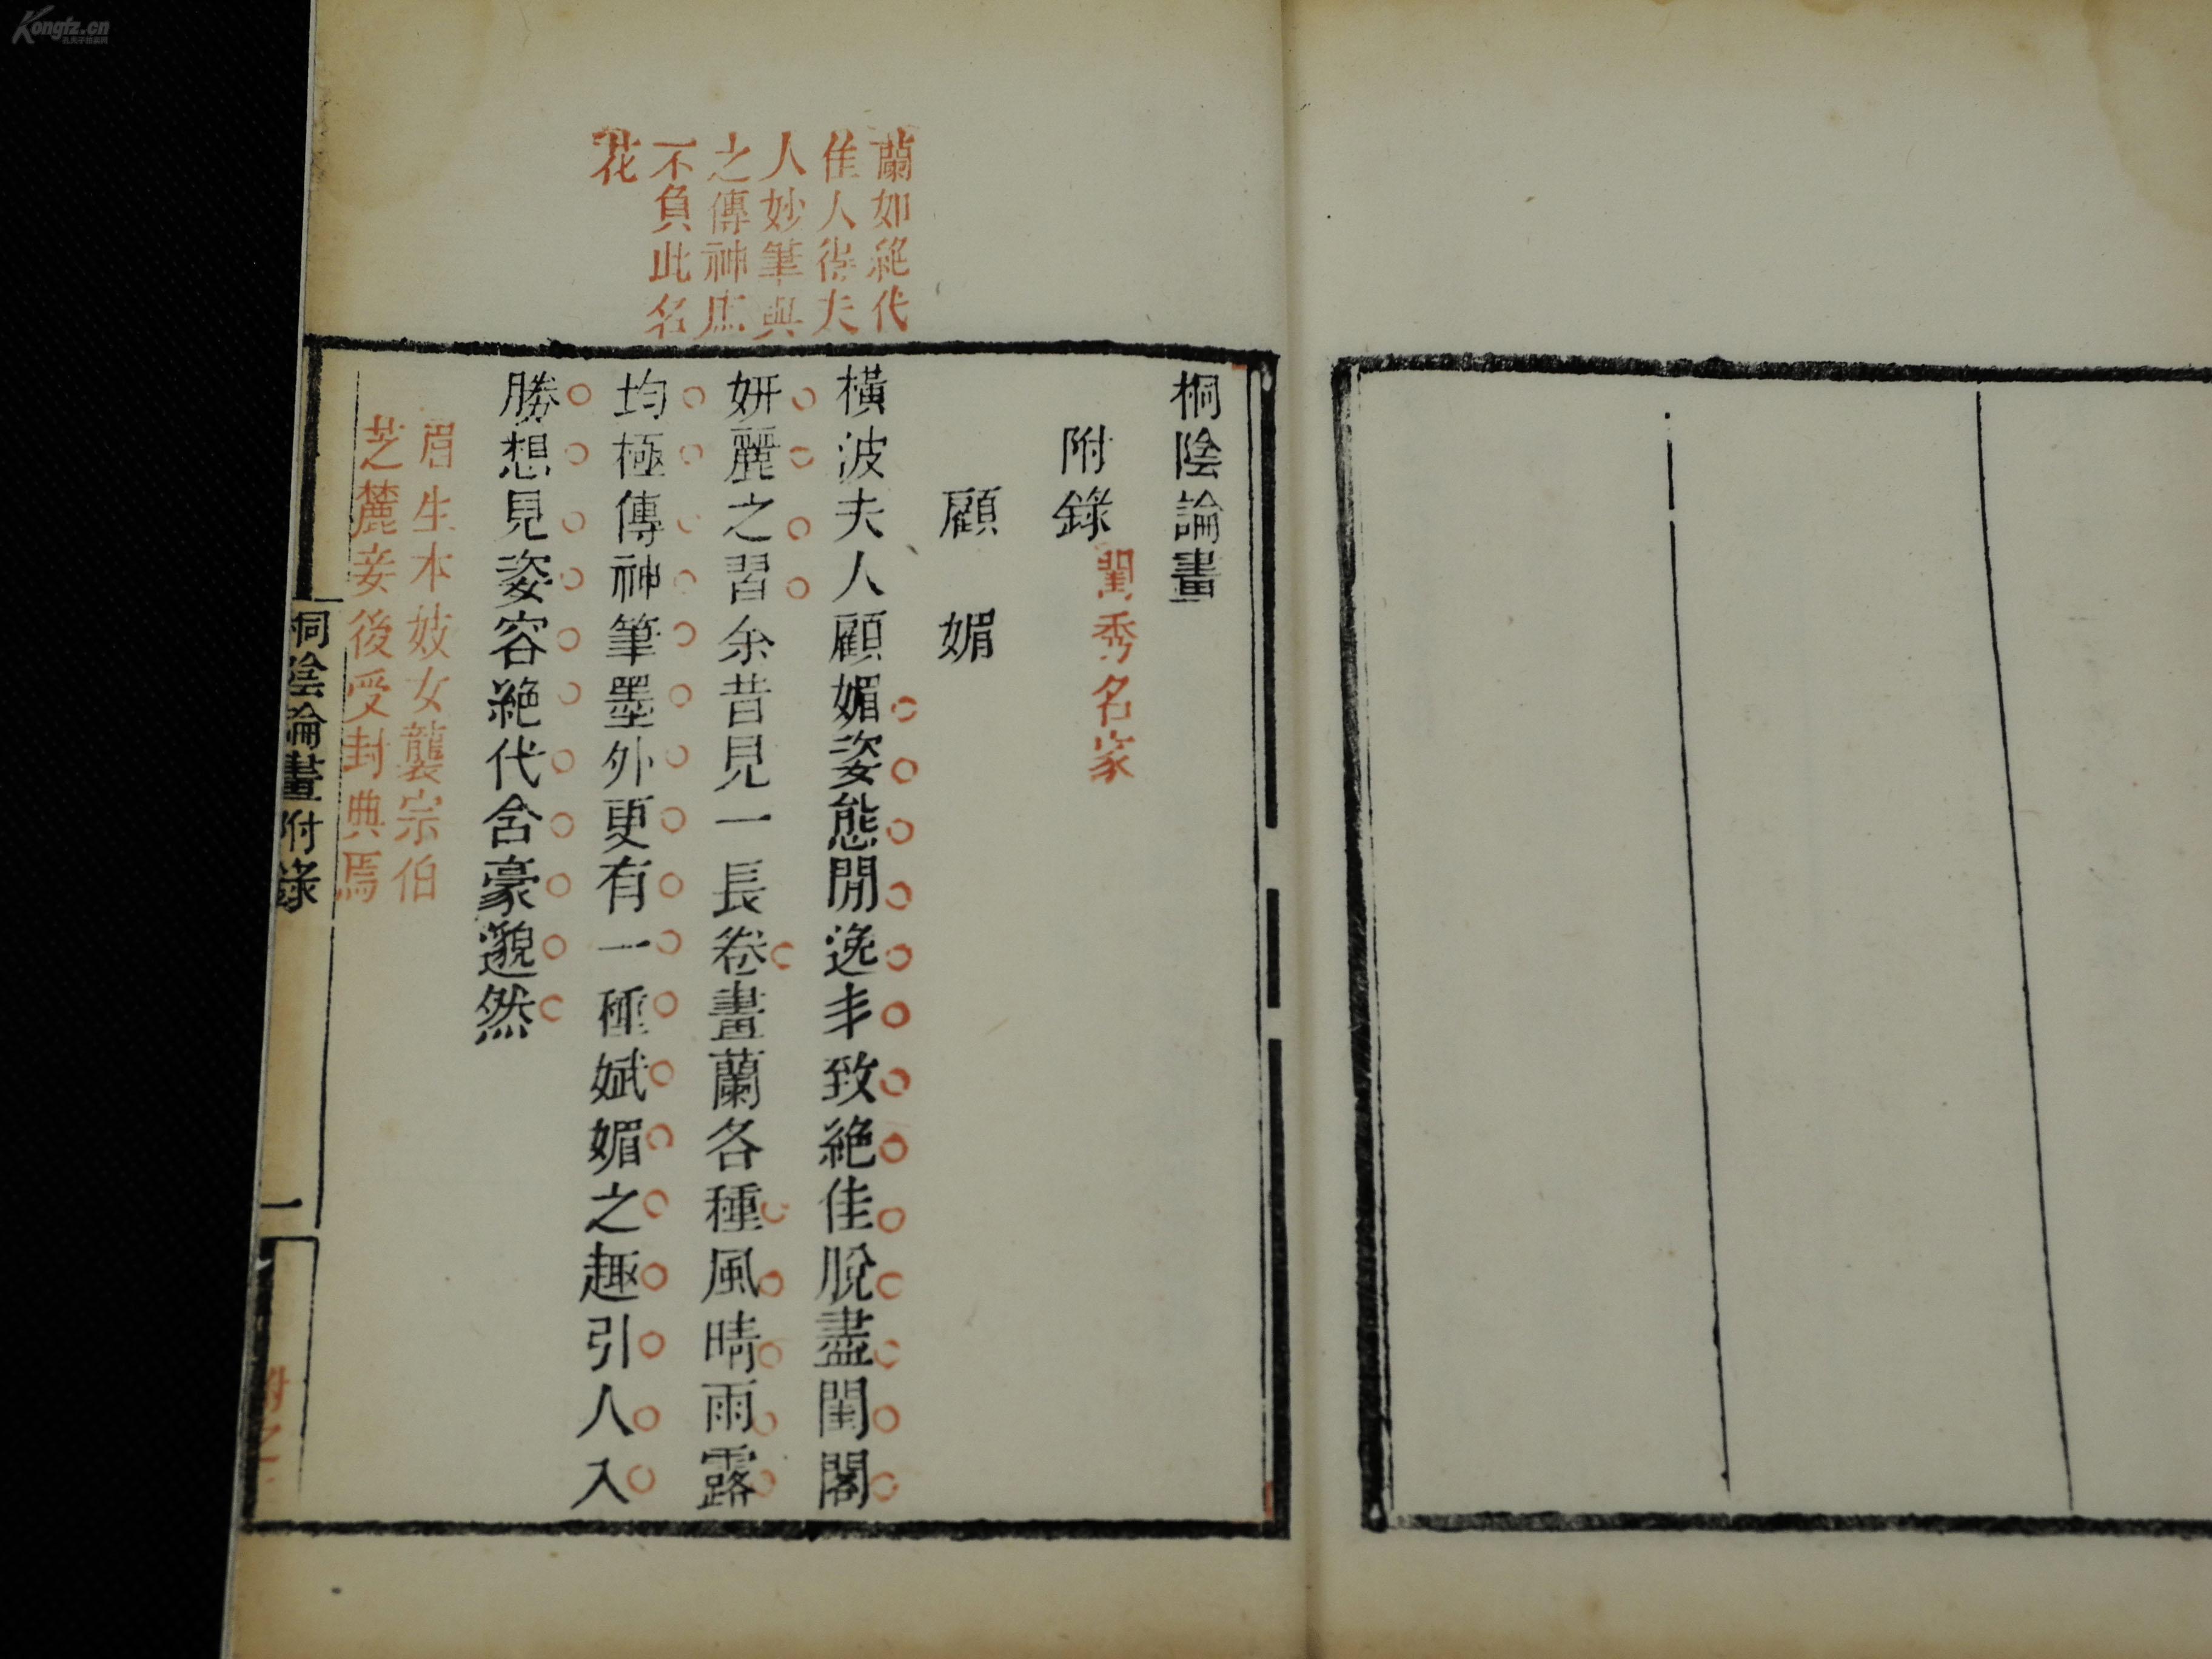 Kongfz.cn
蘭如絕代
佳人得夫
人妙筆與
之傳神庶
不負此名
花
桐陰論畫
附錄閨秀名家
顧媚
橫波夫人顧媚姿態閒逸丰致絕佳脫盡閨閣
妍麗之習余昔見一長卷畫蘭各種風晴雨露
均極傳神筆墨外更有一種娬媚之趣引人入
勝想見姿容絕代含豪邈然
眉生本妓女龔宗伯
芝麓妾後受封典焉
桐陰論畫附錄
一